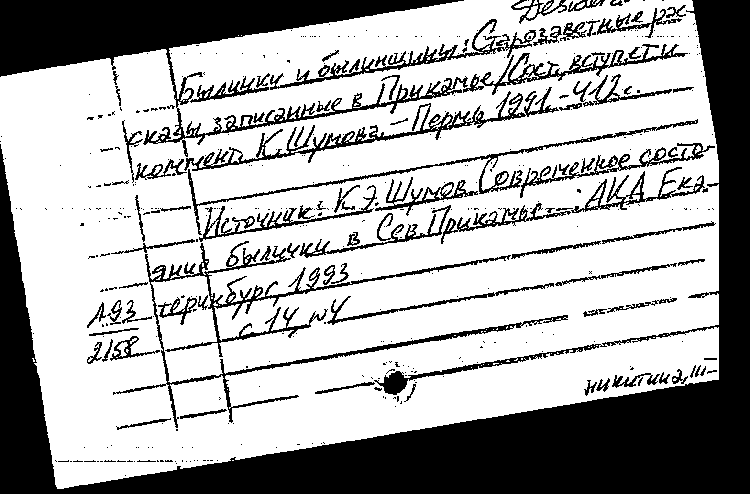 Былички и бывальщины: Старозаветные рас-
сказы, записанные в Прикамье/Сост., вступ. ст. и
коммент. К. Шумова. – Пермь, 1991. – 412 с.
Источник: К.Э. Шумов. Современное состо-
яние былички в Сев. Прикамье. – : АКД. Ека-
теринбург, 1993
с 14, №4
А93
2158
никитина, III-